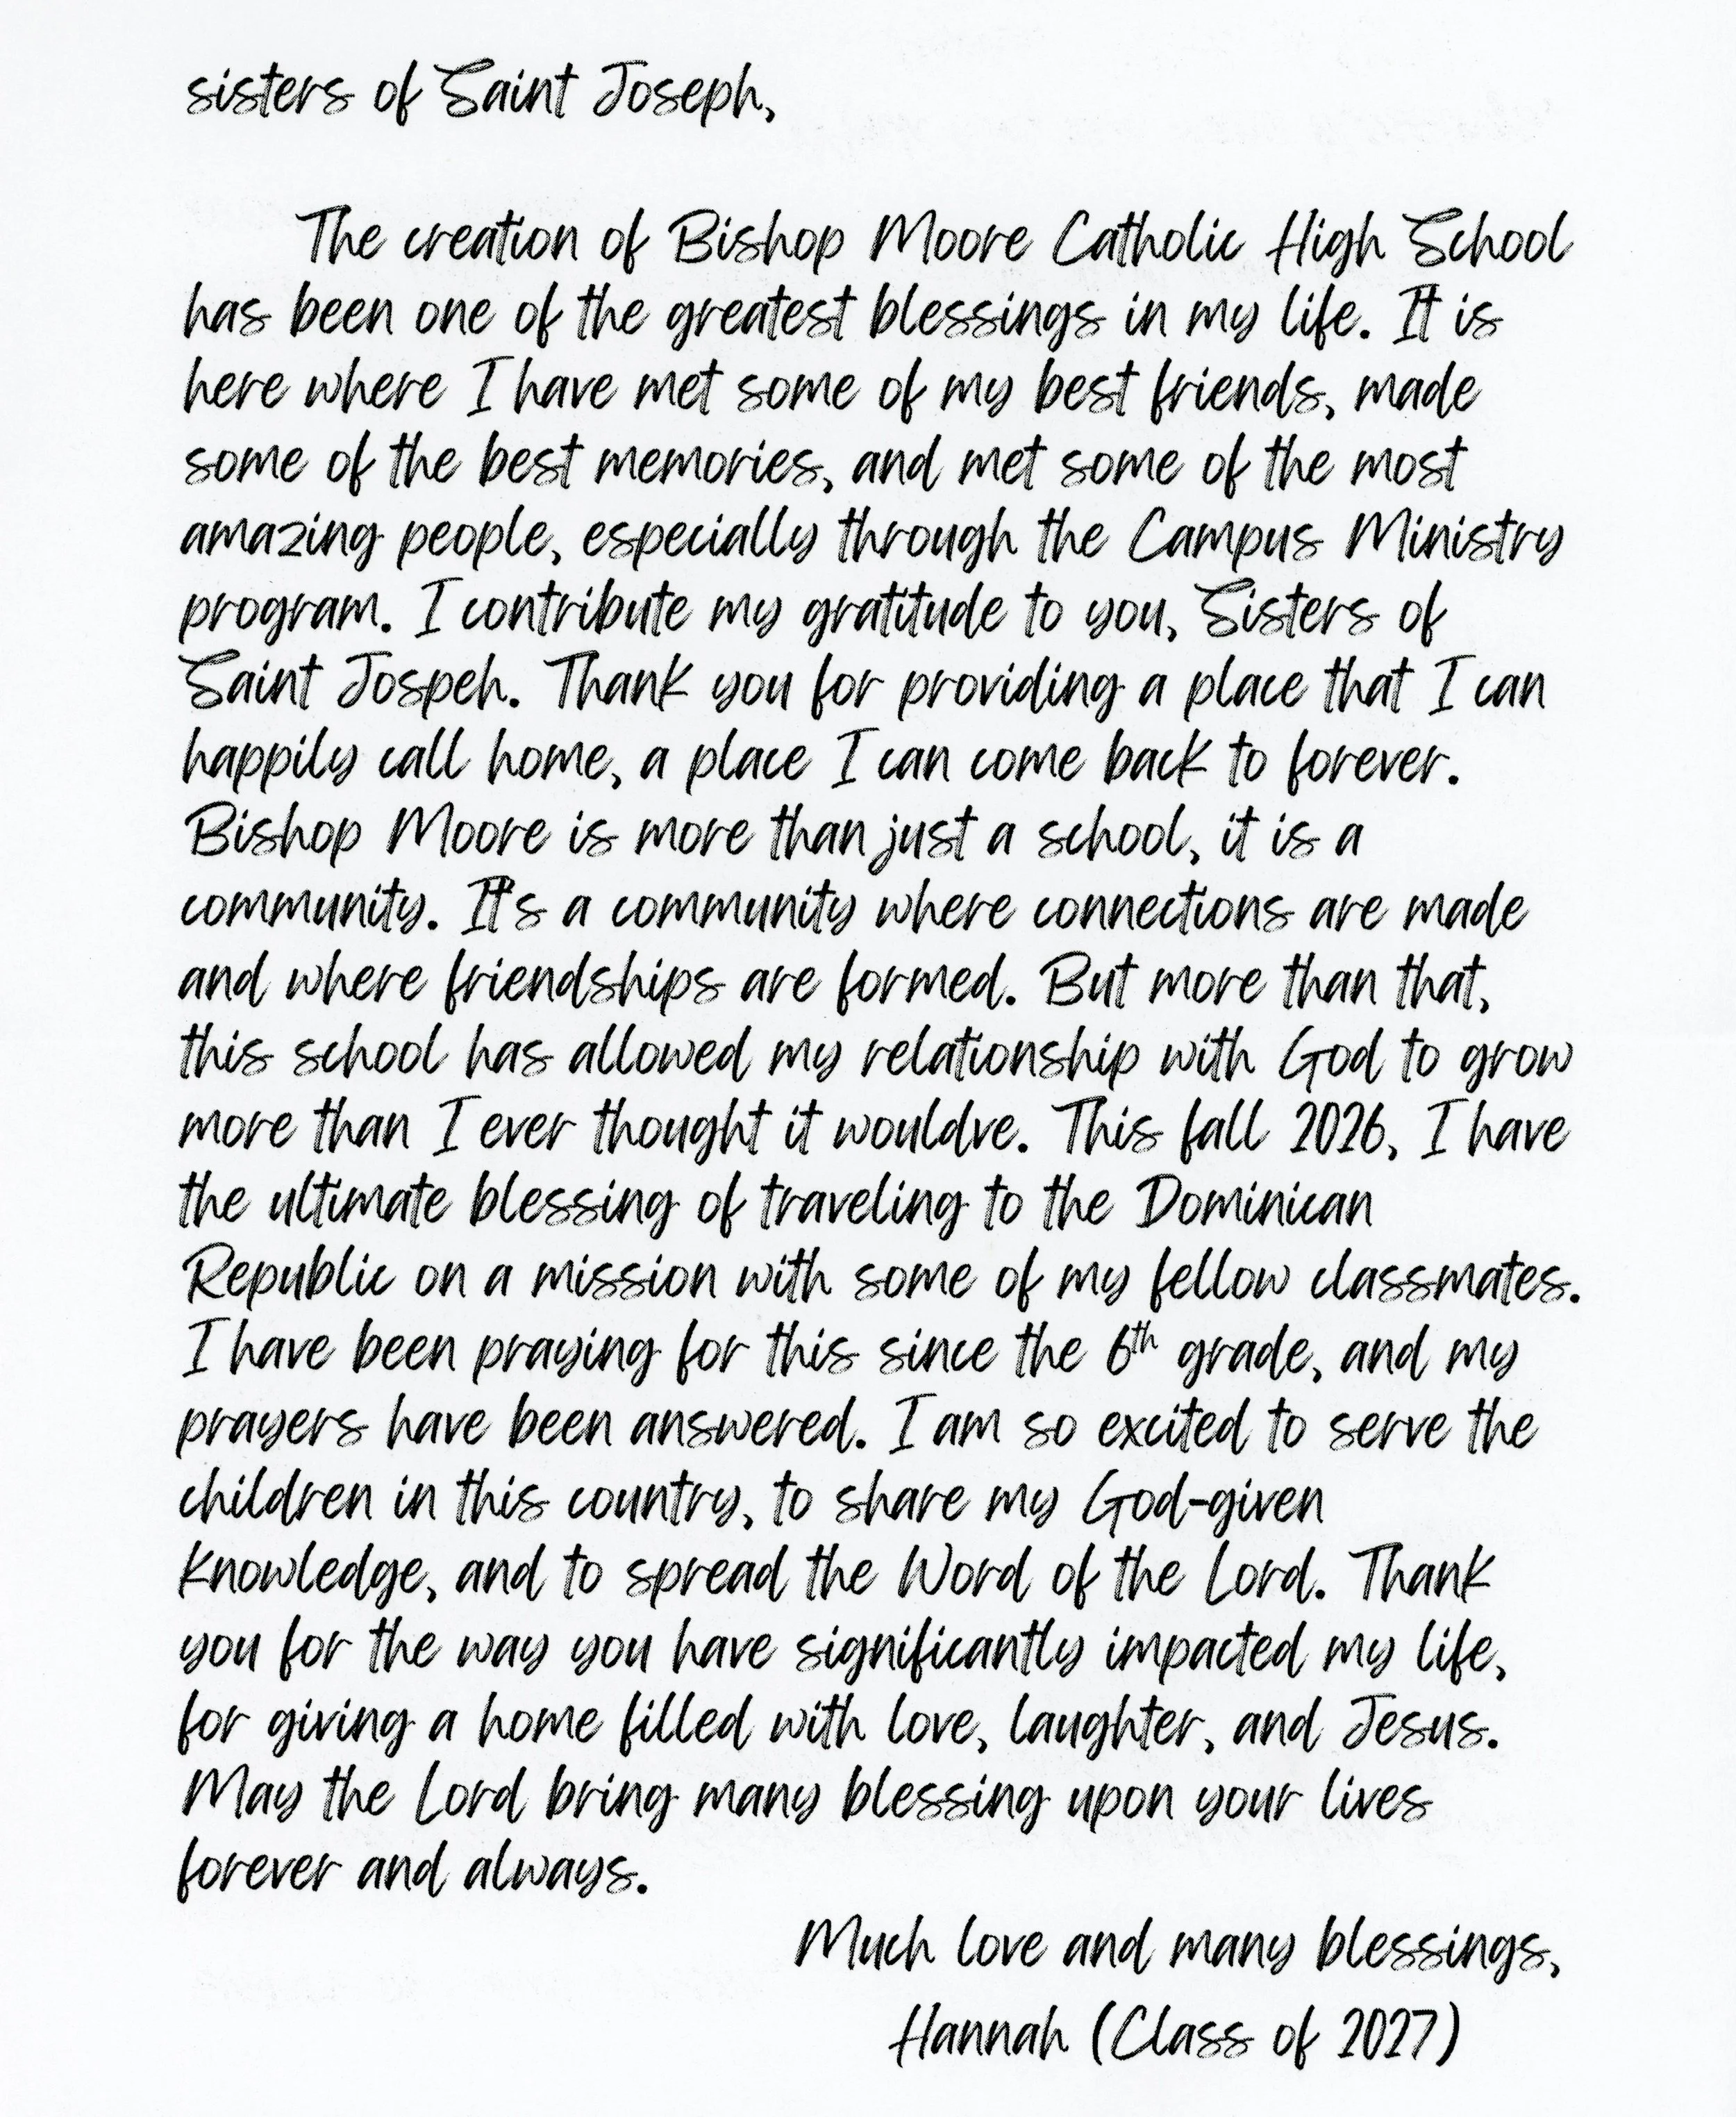 sisters of Saint Joseph,
The creation of Bishop Moore Catholic High School
has been one of the greatest blessings in my life. It is
here where I have met some of my best friends, made
some of the best memories, and met some of the most
amazing people, especially through the Campus Ministry
program. I contribute my gratitude to you, Sisters of
Saint Jospeh. Thank you for providing a place that I can
happily call home, a place I can come back to forever.
Bishop Moore is more than just a school, it is a
community. It's a community where connections are made
and where friendships are formed. But more than that,
this school has allowed my relationship with God to grow
more than I ever thought it wouldve. This fall 2026, I have
the ultimate blessing of traveling to the Dominican
Republic on a mission with some of my fellow classmates.
I have been praying for this since the 6th grade, and my
prayers have been answered. I am so excited to serve the
children in this country, to share my God-given
knowledge, and to spread the Word of the Lord. Thank
you for the way you have significantly impacted my life,
for giving a home filled with love, laughter, and Jesus.
May the Lord bring many blessing upon your lives
forever and always.
Much love and many blessings,
Hannah (Class of 2027)